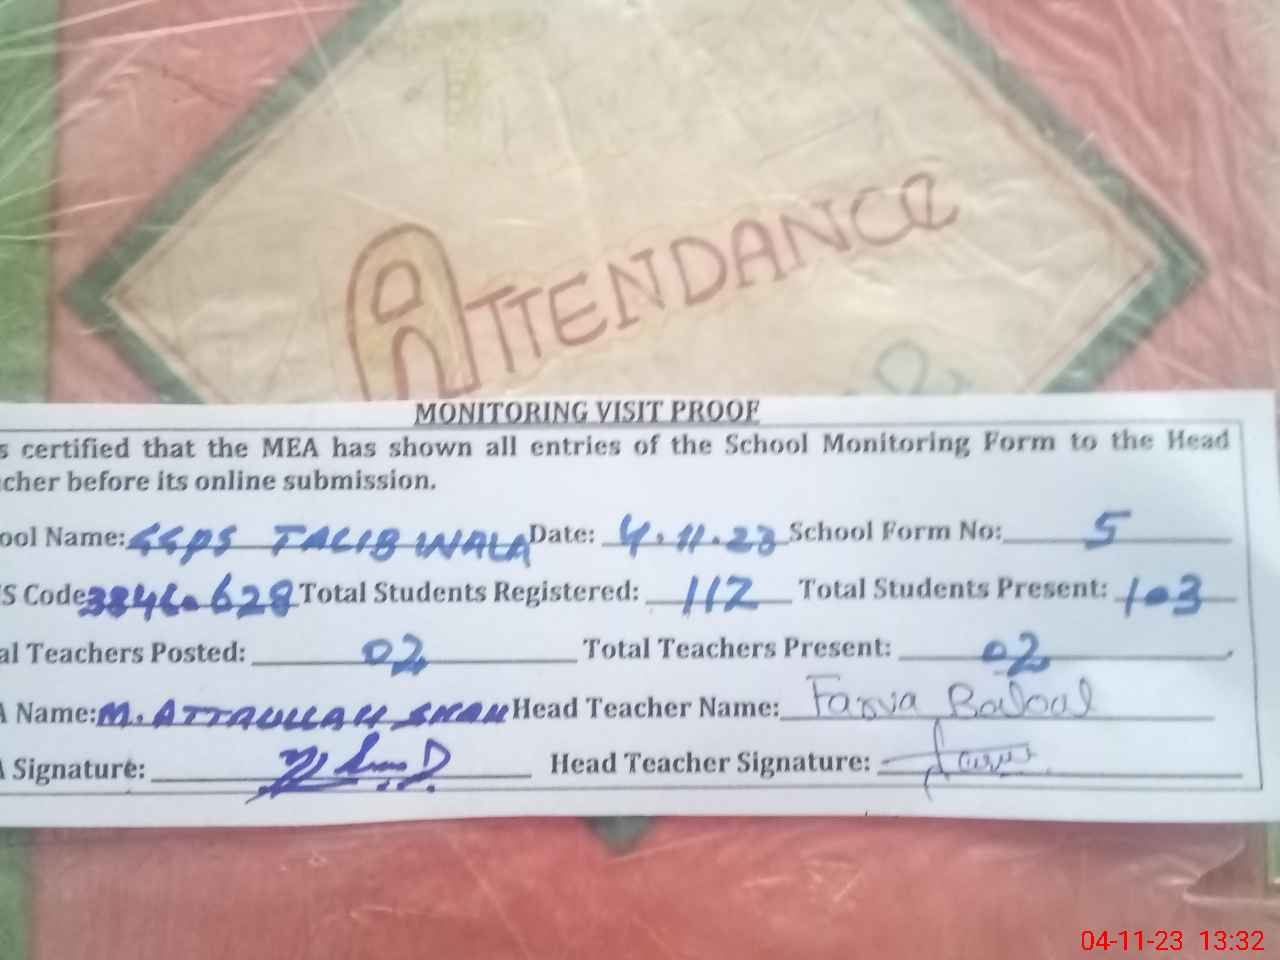 ATTENDANCE
MONITORING VISIT PROOF
s certified that the MEA has shown all entries of the School Monitoring Form to the Head
cher before its online submission.
ool Name: GGPS TALIB WALA Date: 4.11.23 School Form No: 5
S Code Total Students Registered: 112 Total Students Present: 103
al Teachers Posted: 02 Total Teachers Present: 02
A Name: M. ATTAULLAH SHAH Head Teacher Name: Farva
A Signature: Head Teacher Signature:
04-11-23 13:32